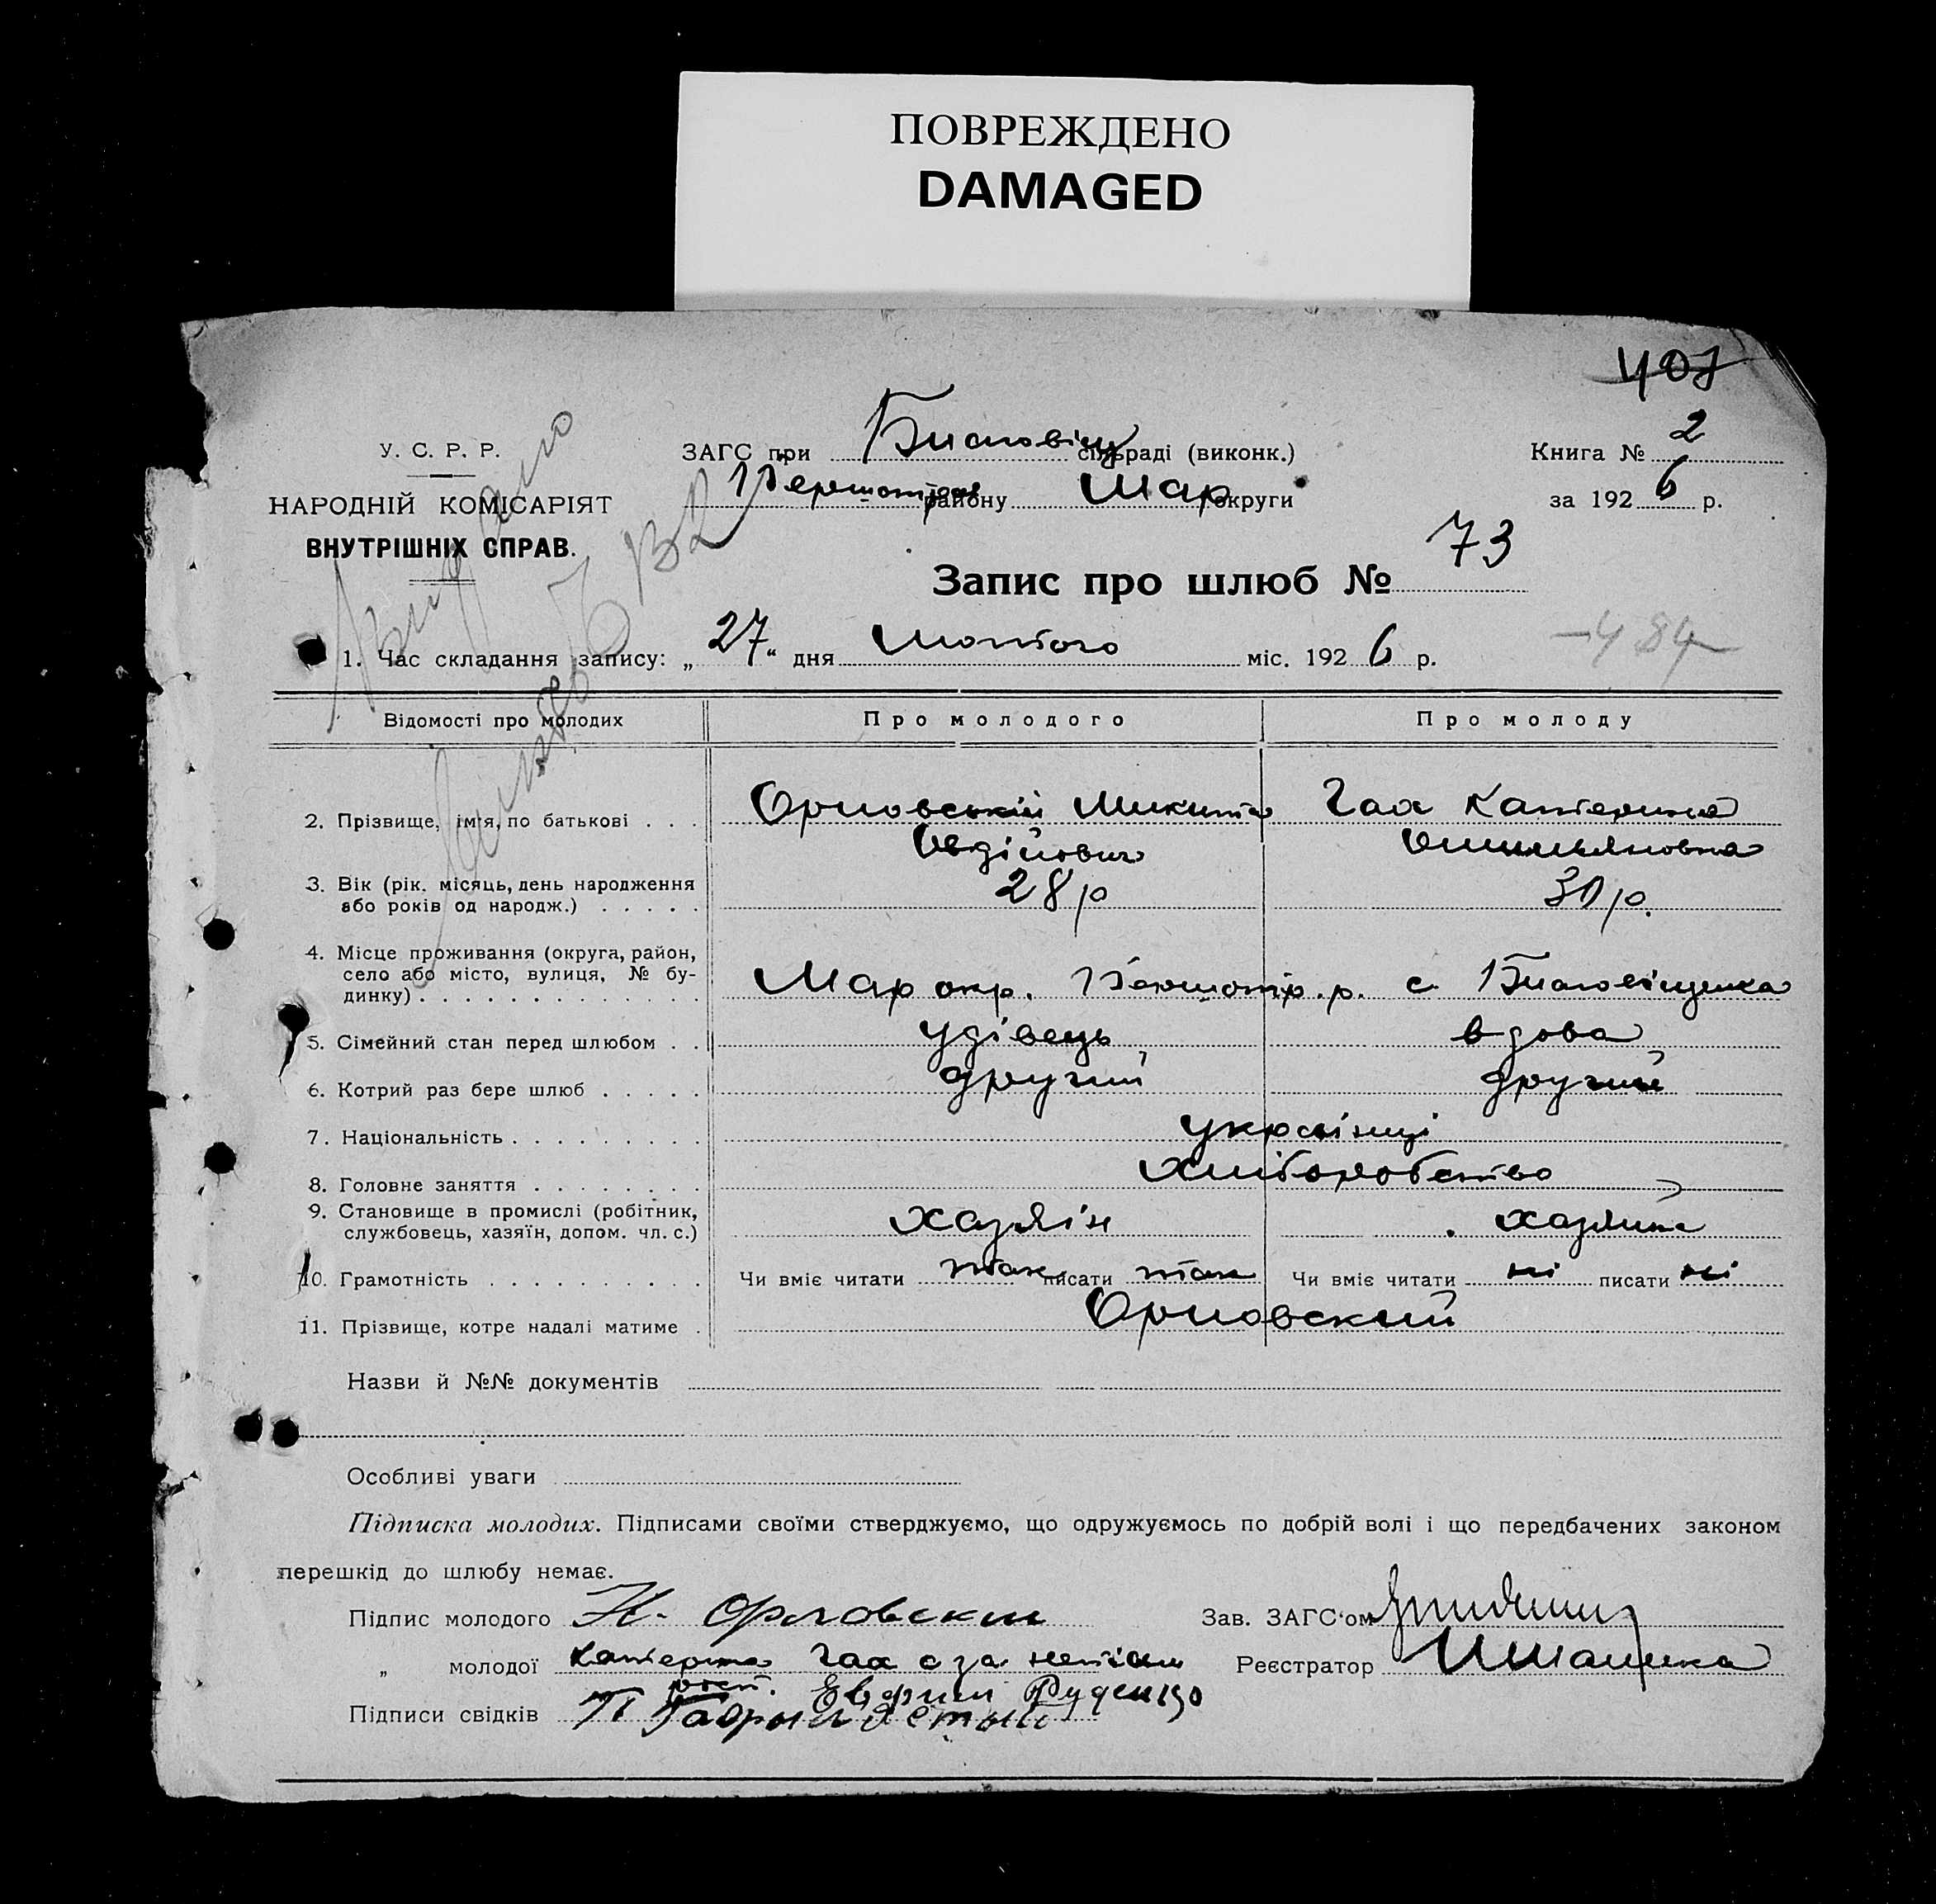 ПОВРЕЖДЕНО
DAMAGED
407
У. С. Р. Р.
НАРОДНІЙ КОМІСАРІЯТ
ВНУТРІШНІХ СПРАВ.
ЗАГС при Благовіщ сільраді (виконк.)
района Мар округи
Книга № 2
за 1926 р.
Запис про шлюб № 73
1. Час складання запису: „27“ дня лютого міс. 1926 р.
484
Відомості про молодих Про молодого Про молоду
2. Прізвище, ім'я, по батькові . . . Орловській Микита Гаа Катерина
Овдійович Омельяновна
3. Вік (рік. місяць, день народження
або років од народж.) . . . . . 28 р 30 р.
4. Місце проживання (округа, район,
село або місто, вулиця, № бу-
динку) . . . . . . . . . . . . . Мар окр. р. с. Благовіщенка
5. Сімейний стан перед шлюбом . . удівець вдова
6. Котрий раз бере шлюб . . . . . другий другий
7. Національність . . . . . . . . . українці
8. Головне заняття . . . . . . . . хліборобство
9. Становище в промислі (робітник,
службовець, хазяїн, допом. чл. с.) хазяін хазяйка
10. Грамотність . . . . . . . . . . Чи вміє читати так писати так Чи вміє читати ні писати ні
11. Прізвище, котре надалі матиме . Орловский
Назви й №№ документів
Особливі уваги
Підписка молодих. Підписами своїми стверджуємо, що одружуємось по добрій волі і що передбачених законом
перешкід до шлюбу немає.
Підпис молодого Н. Орловски Зав. ЗАГС'ом
„ молодої Катерина Гаа а за
Реєстратор
Підписи свідків Руденко